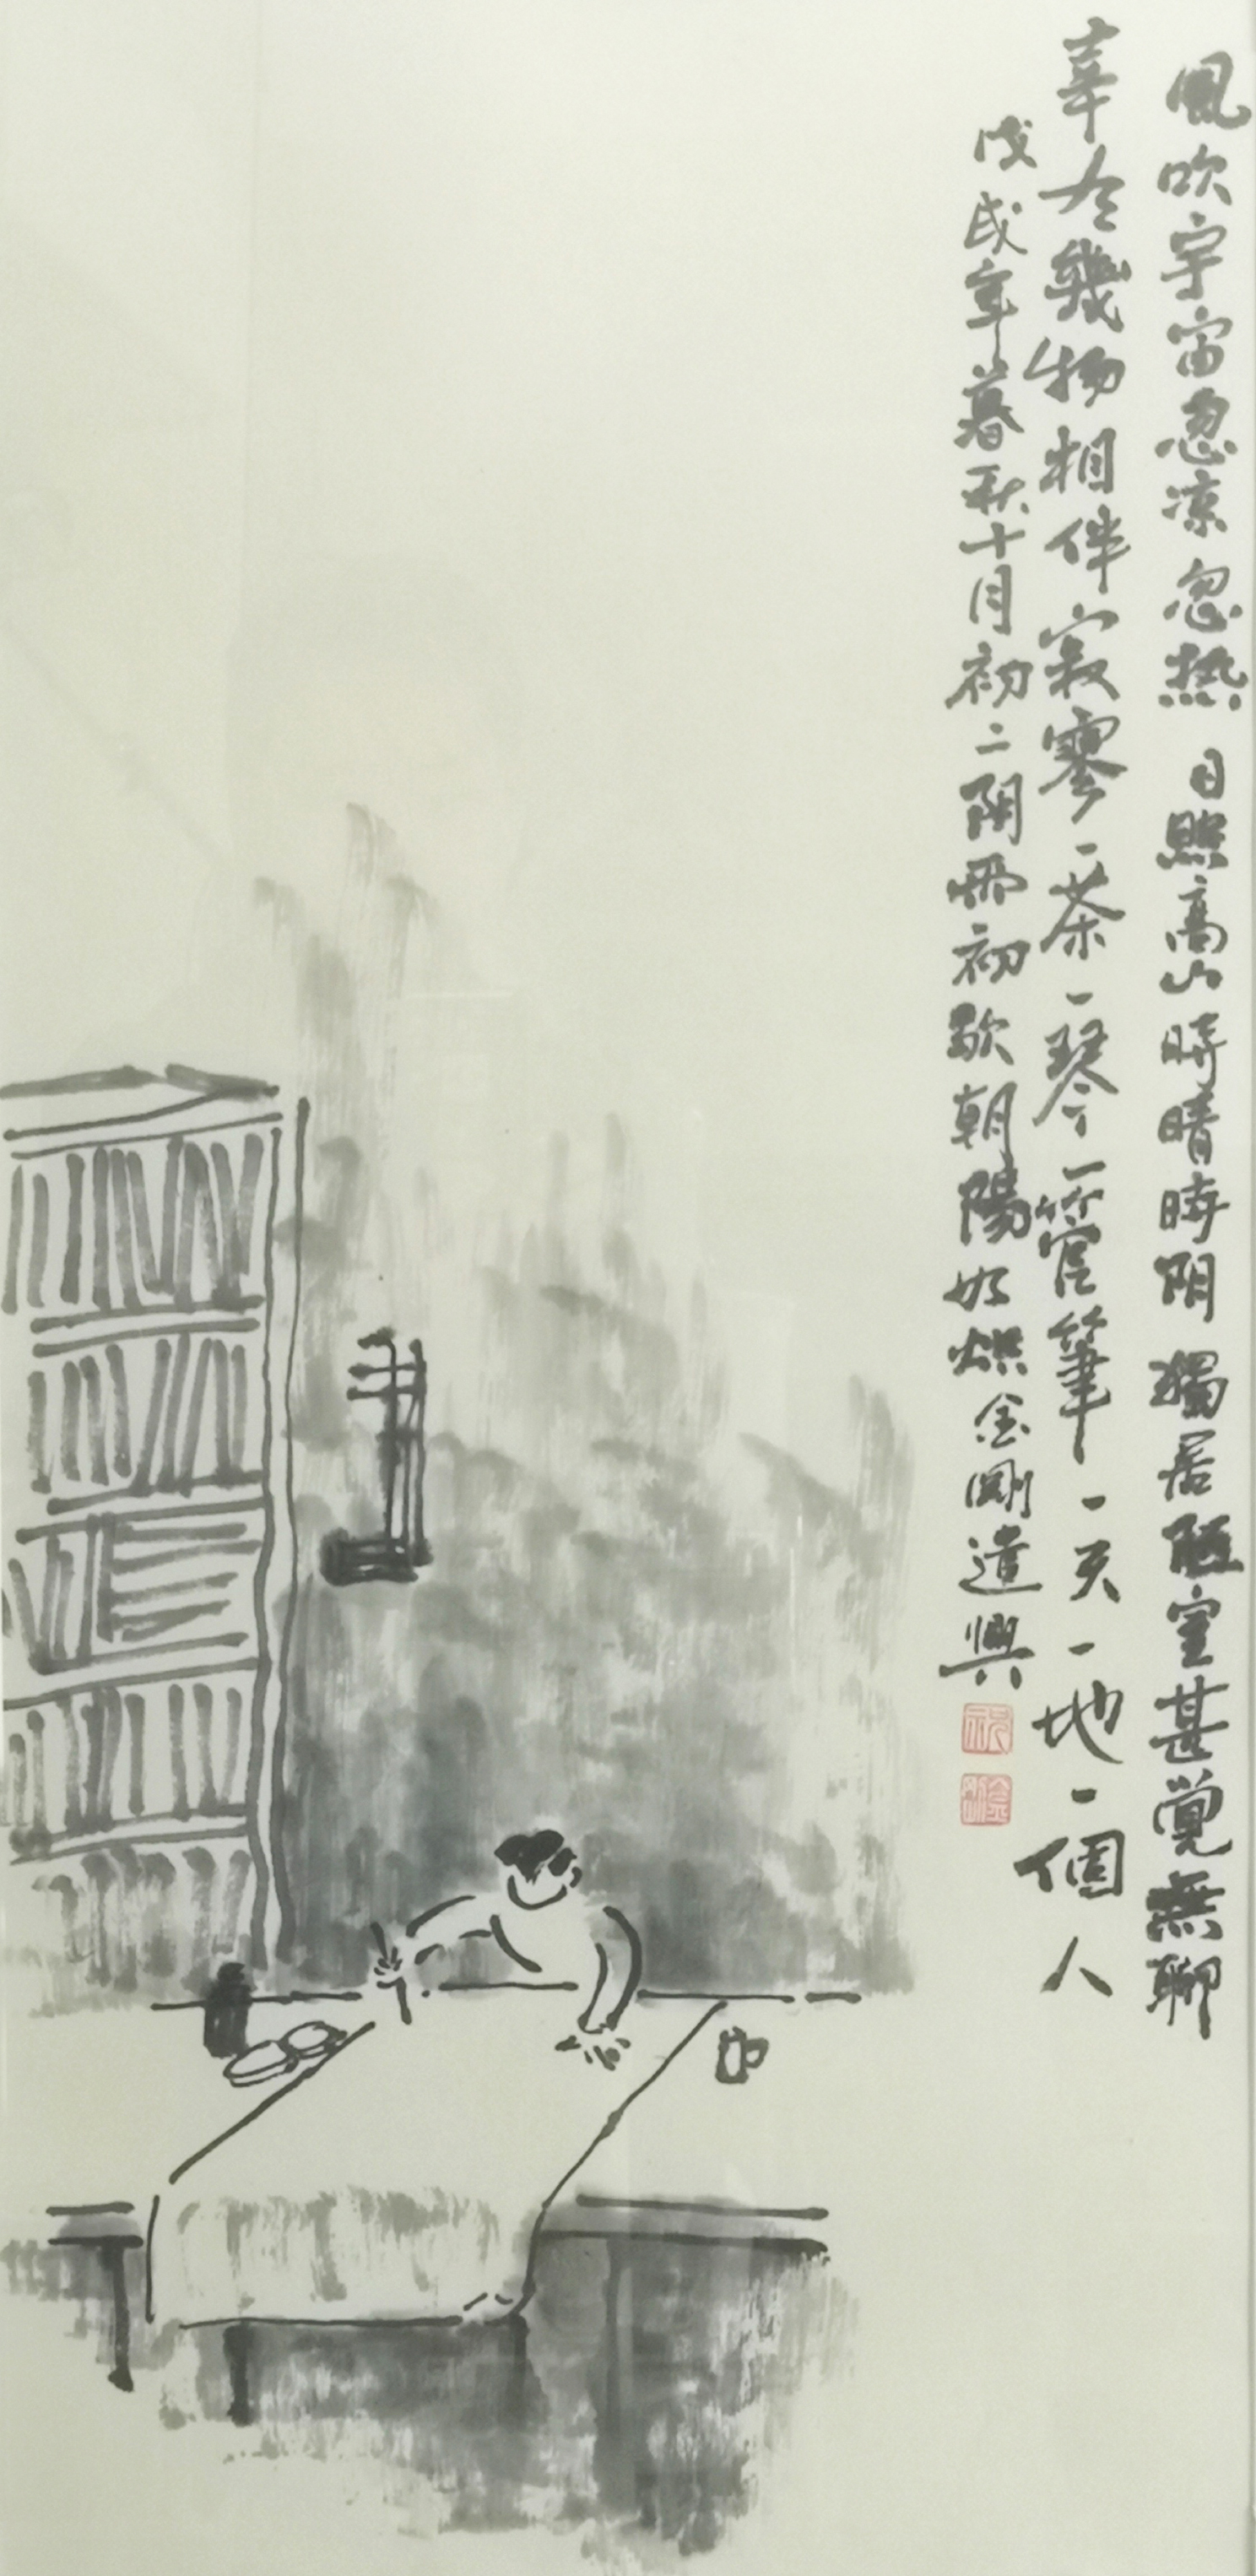 風吹宇宙忽凉忽热日照高山時晴時阴獨居陋室甚覺無聊
幸今幾物相伴寂寥一茶一琴一管筆一天一地一個人
戊戌年暮秋十月初二阴雨初歇朝陽如燃金剛遣興